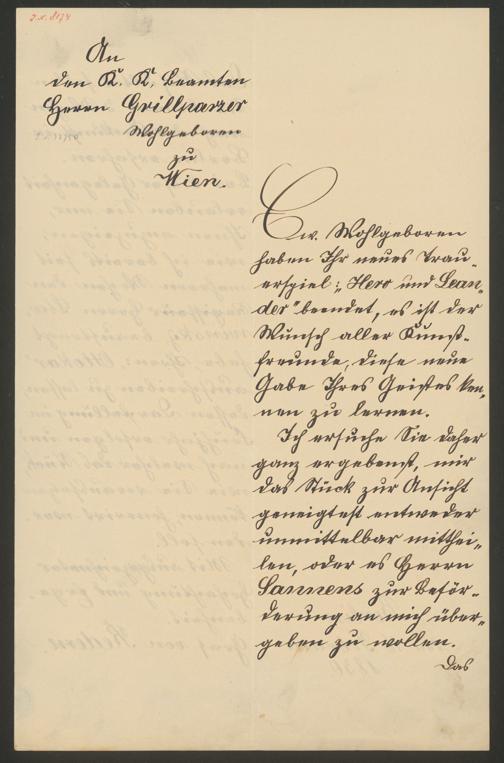 J.N. 8174
An
den K. K. Beamten
Herrn Grillparzer
Wohlgeboren
zu
Wien.
Ew. Wohlgeboren
haben Ihr neues Trau-
erspiel: „Hero und Lean-
der" beendet, es ist der
Wunsch aller Kunst-
freunde, diese neue
Gabe Ihres Geistes ken-
nen zu lernen.
Ich ersuche Sie daher
ganz ergebenst, mir
das Stück zur Ansicht
geneigtest entweder
unmittelbar mitthei-
len, oder es Herrn
zur Beför-
derung an mich über-
geben zu wollen.
Das